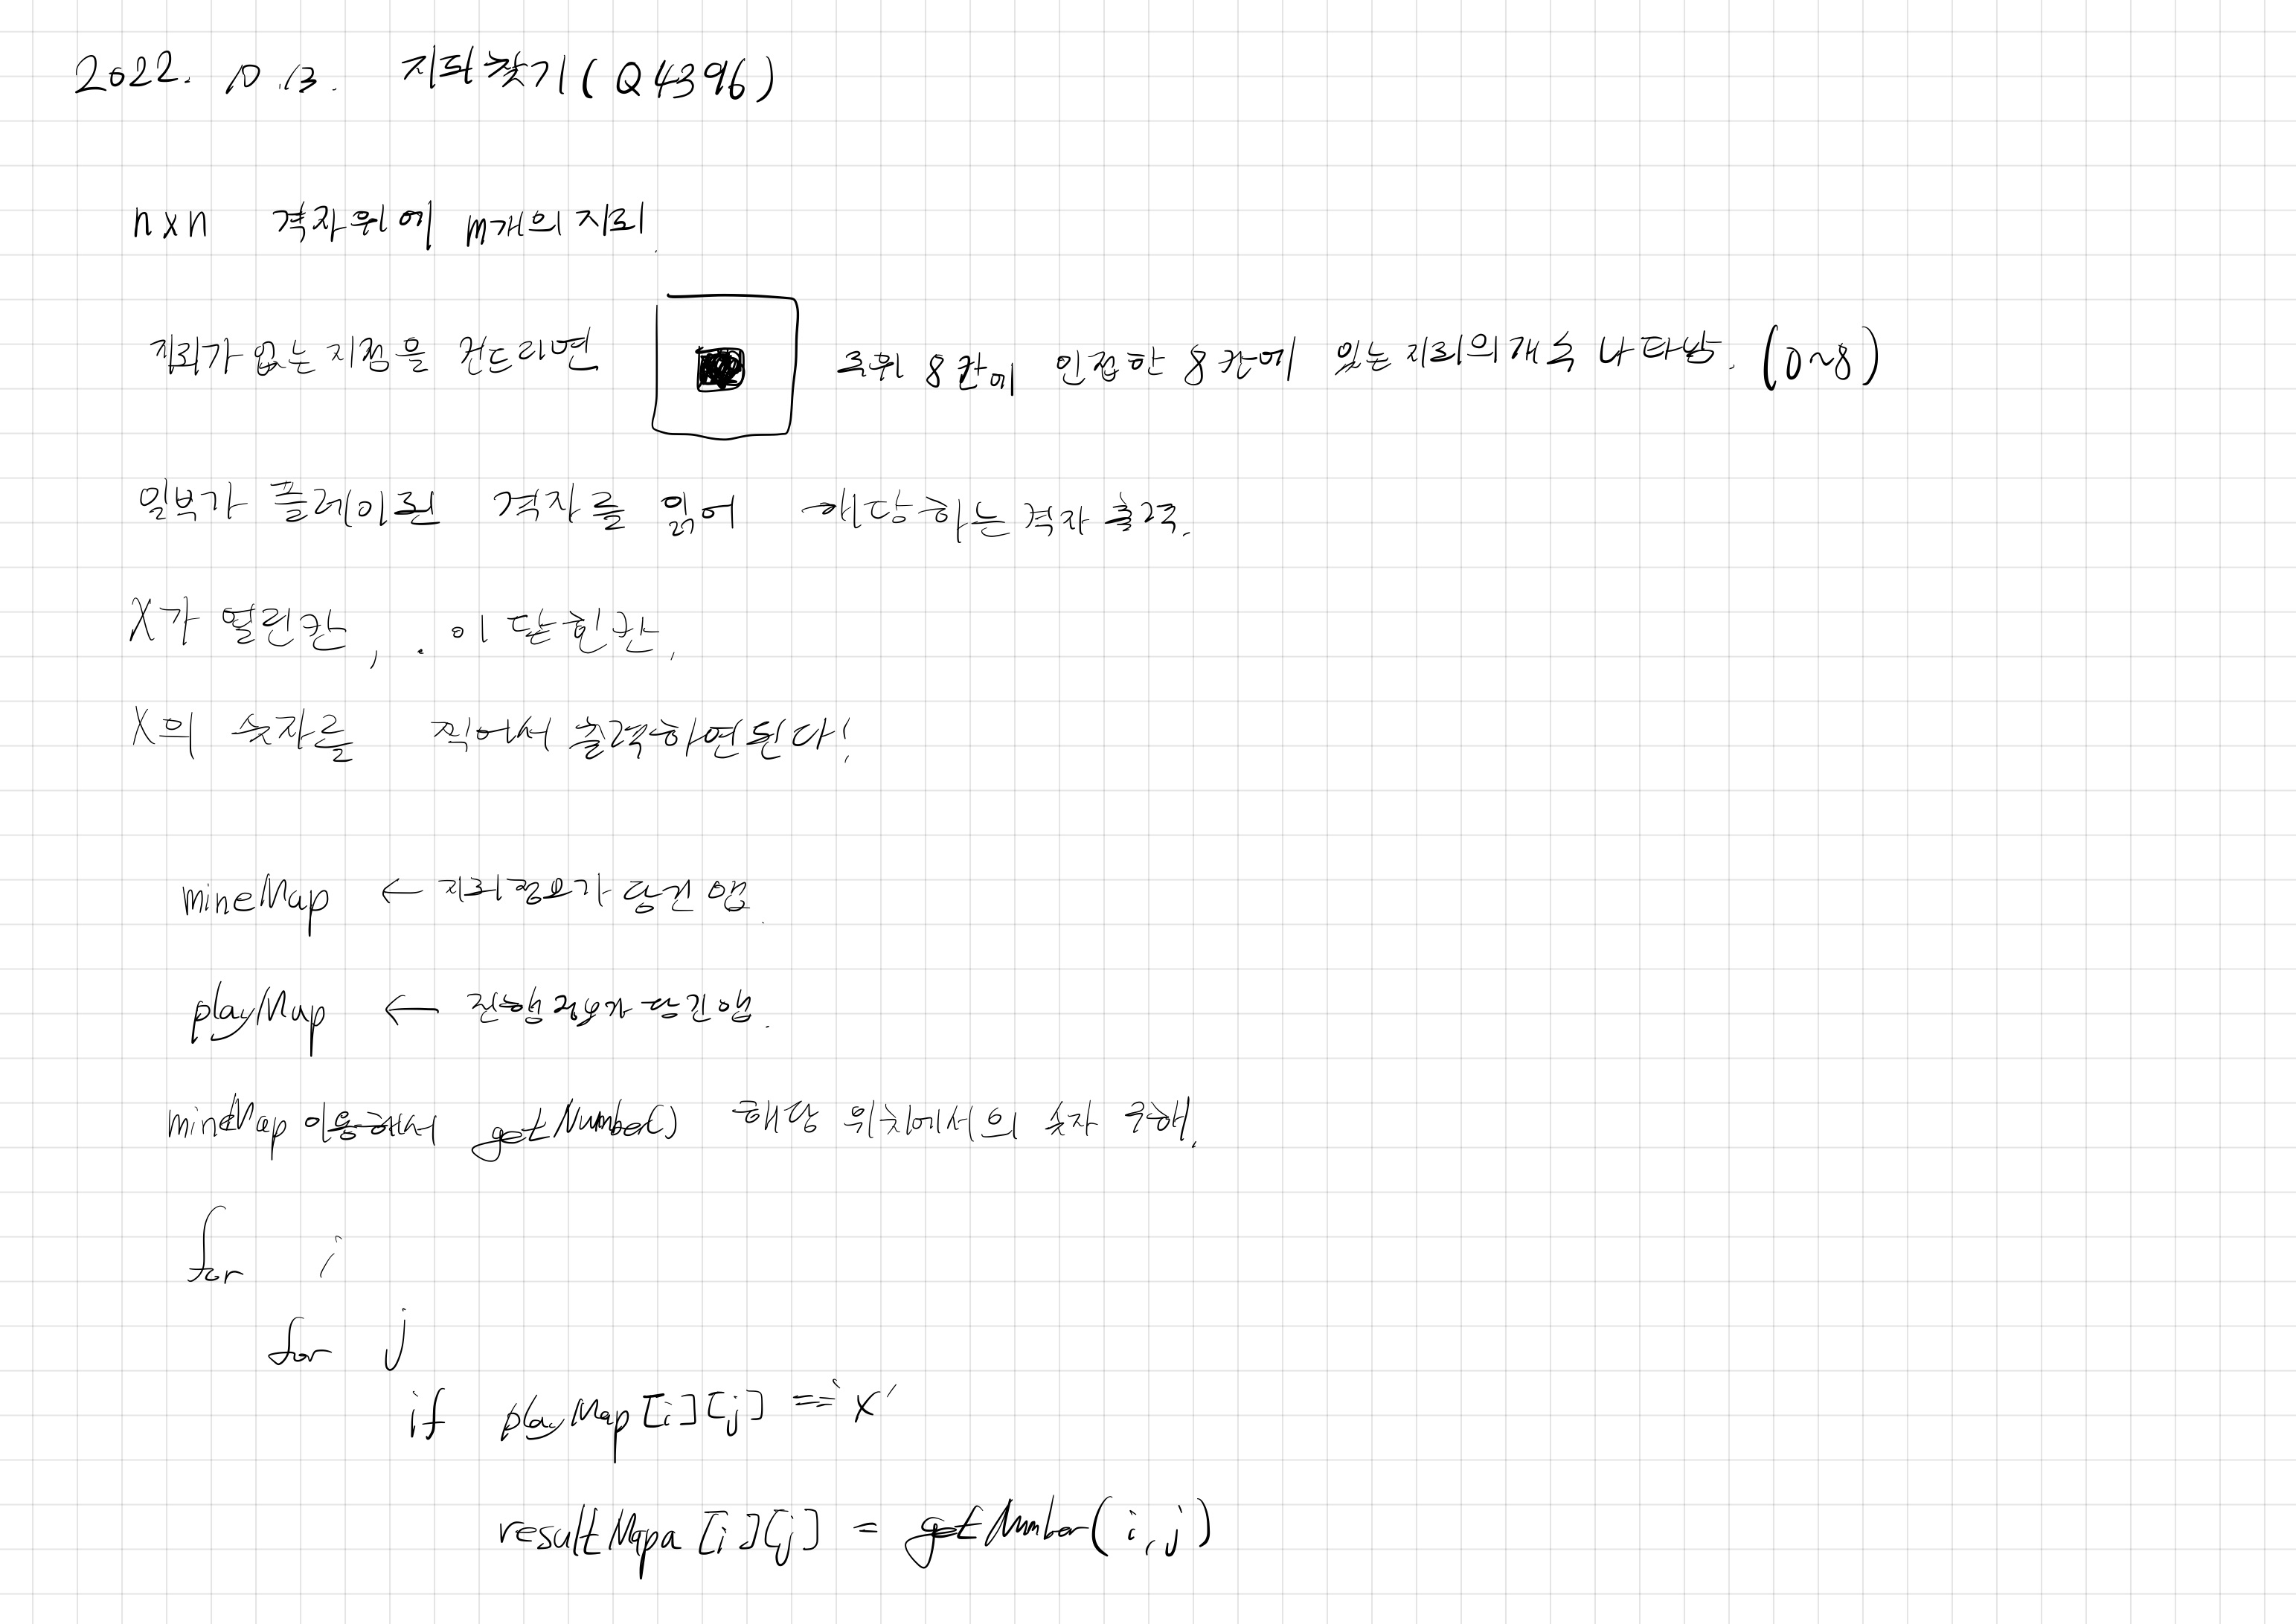 2022. 10.13. 지뢰찾기 (Q4396)
n x n 격자위에 m개의 지뢰.
지뢰가 없는 지점을 건드리면 주위 8칸에 인접한 8칸에 있는 지뢰의 개수 나타남. (0~8)
일부가 플레이된 격자를 읽어 해당하는 격자 출력.
X가 열린칸, . 이 닫힌칸.
X의 숫자를 찍어서 출력하면된다!
mineMap ← 지뢰정보가 담긴 맵.
playMap ← 진행정보가 담긴 맵.
mineMap 이용해서 getNumber() 해당 위치에서의 숫자 구해.
for i
for j
if playMap[i][j] == 'x'
resultMapa[i][j] = getNumber(i,j)